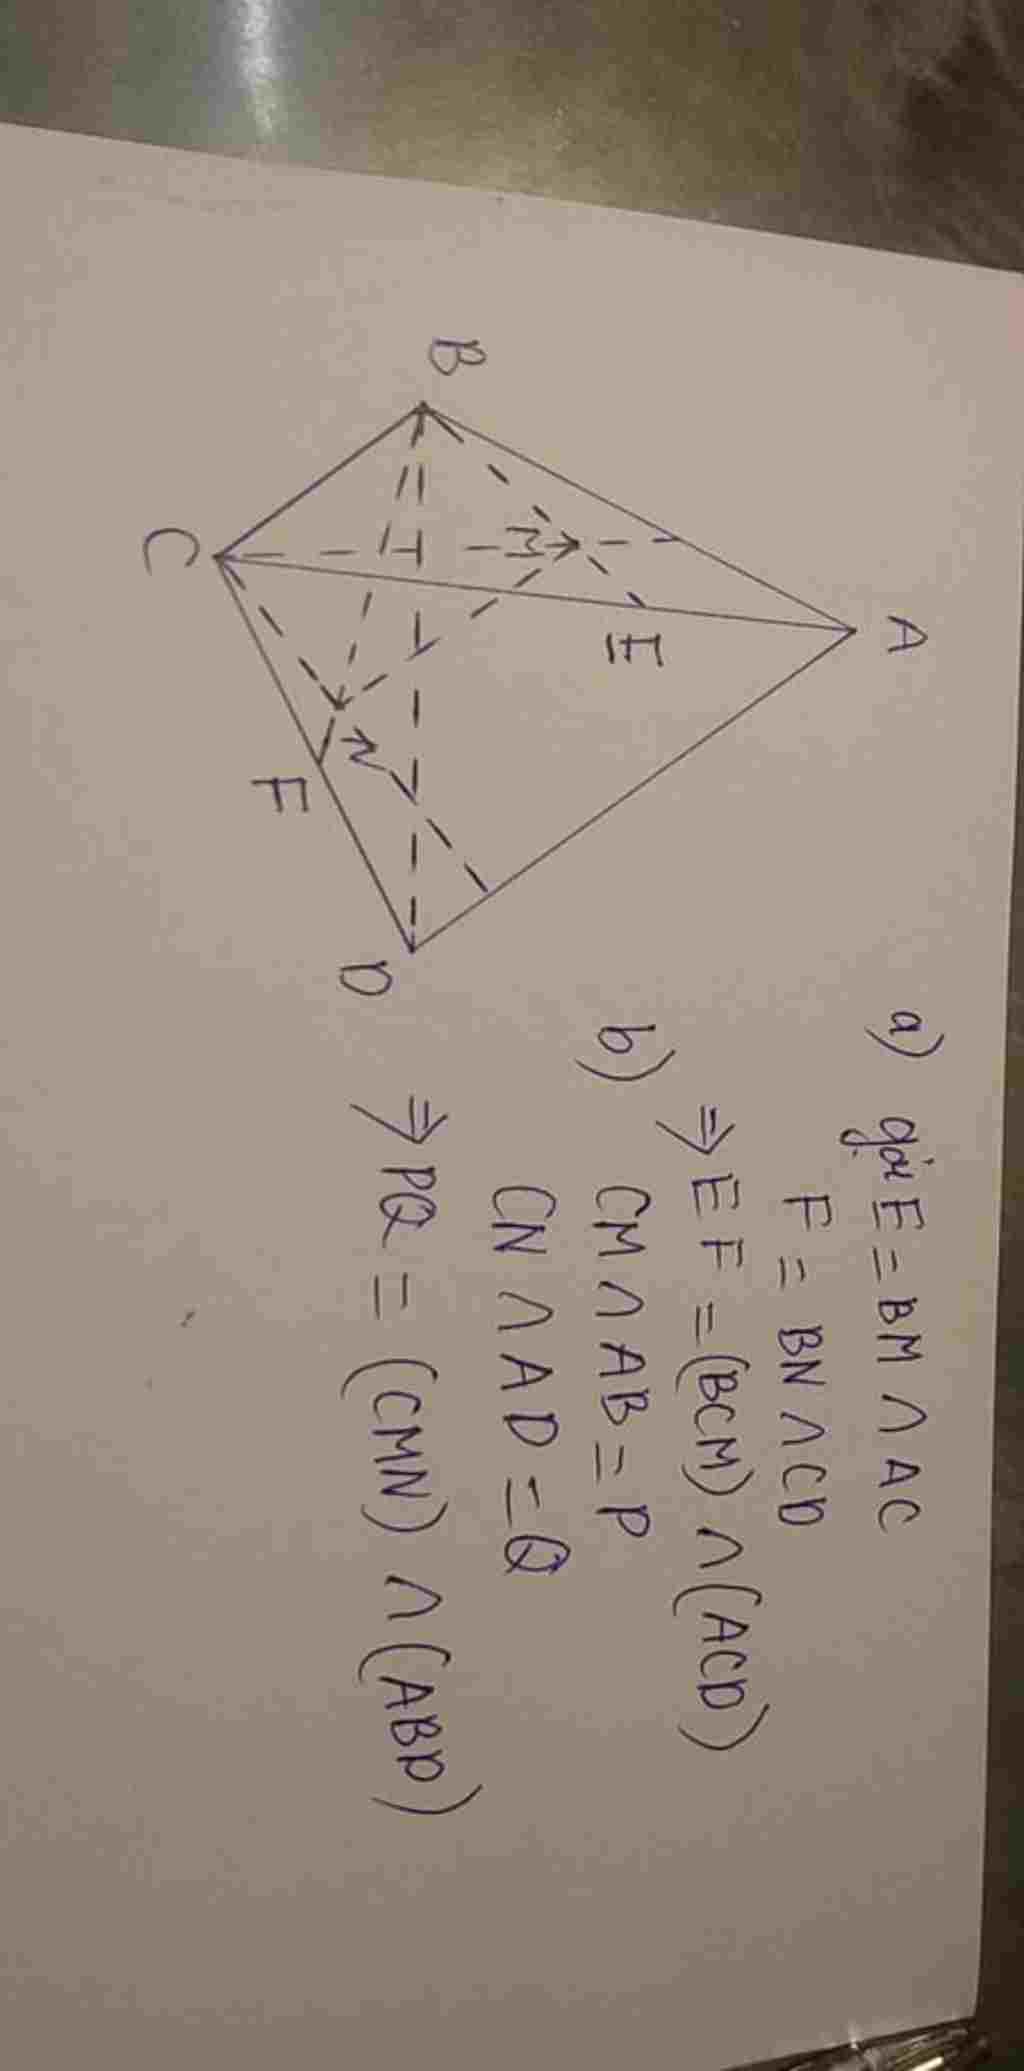 A
B
M
E
C
N
F
D
a) gọi E = BM ∩ AC
F = BN ∩ CD
⇒ EF = (BCM) ∩ (ACD)
b) CM ∩ AB = P
CN ∩ AD = Q
⇒ PQ = (CMN) ∩ (ABD)